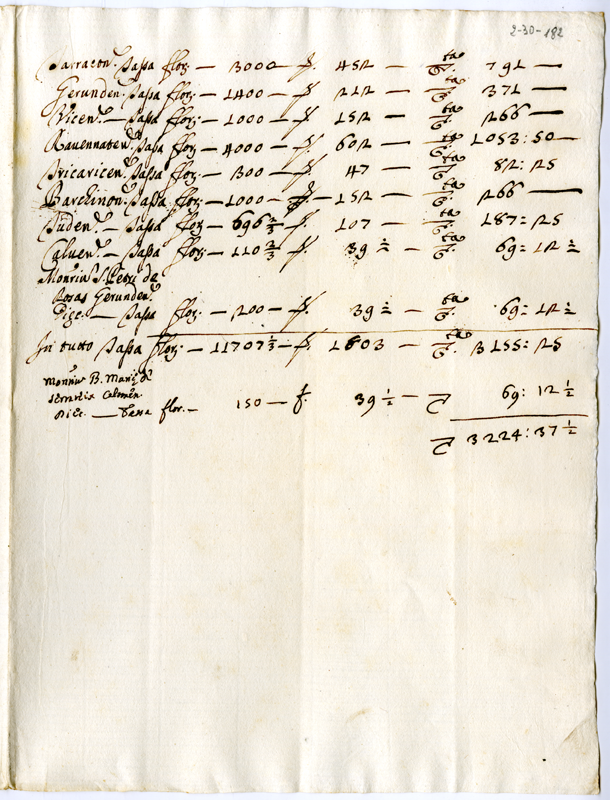 2-30-182
Tarracon. Tassa flor. — 3000 — f. 452 — 791 —
Gerunden. Tassa flor. — 1400 — f. 212 — 371 —
Vicen. — Tassa flor. — 1000 — f. 152 — 266 —
Ravennaten. Tassa flor. — 4000 — f. 602 — 1053:50 —
Tricaricen. Tassa flor. — 300 — f. 47 — 82:25
Barchinon. Tassa flor. — 1000 — f. 152 — 266 —
Tuden. — Tassa flor. — 696 2/3 — f. 107 — 187:25
Calven. — Tassa flor. — 110 2/3 f. 39 ½ — 69:12 ½
Monrii S. Petri de
Rosas Gerunden.
Dice. — Tassa flor. — 200 — f. 39 ½ — 69:12 ½
In tutto Tassa flor. — 11707 1/3 — f. 1803 — 3155:25
Monrii B. Mariæ de
Calomen
Dice. — Tassa flor. — 150 — f. 39 ½ — 69:12 ½
3224:37 ½